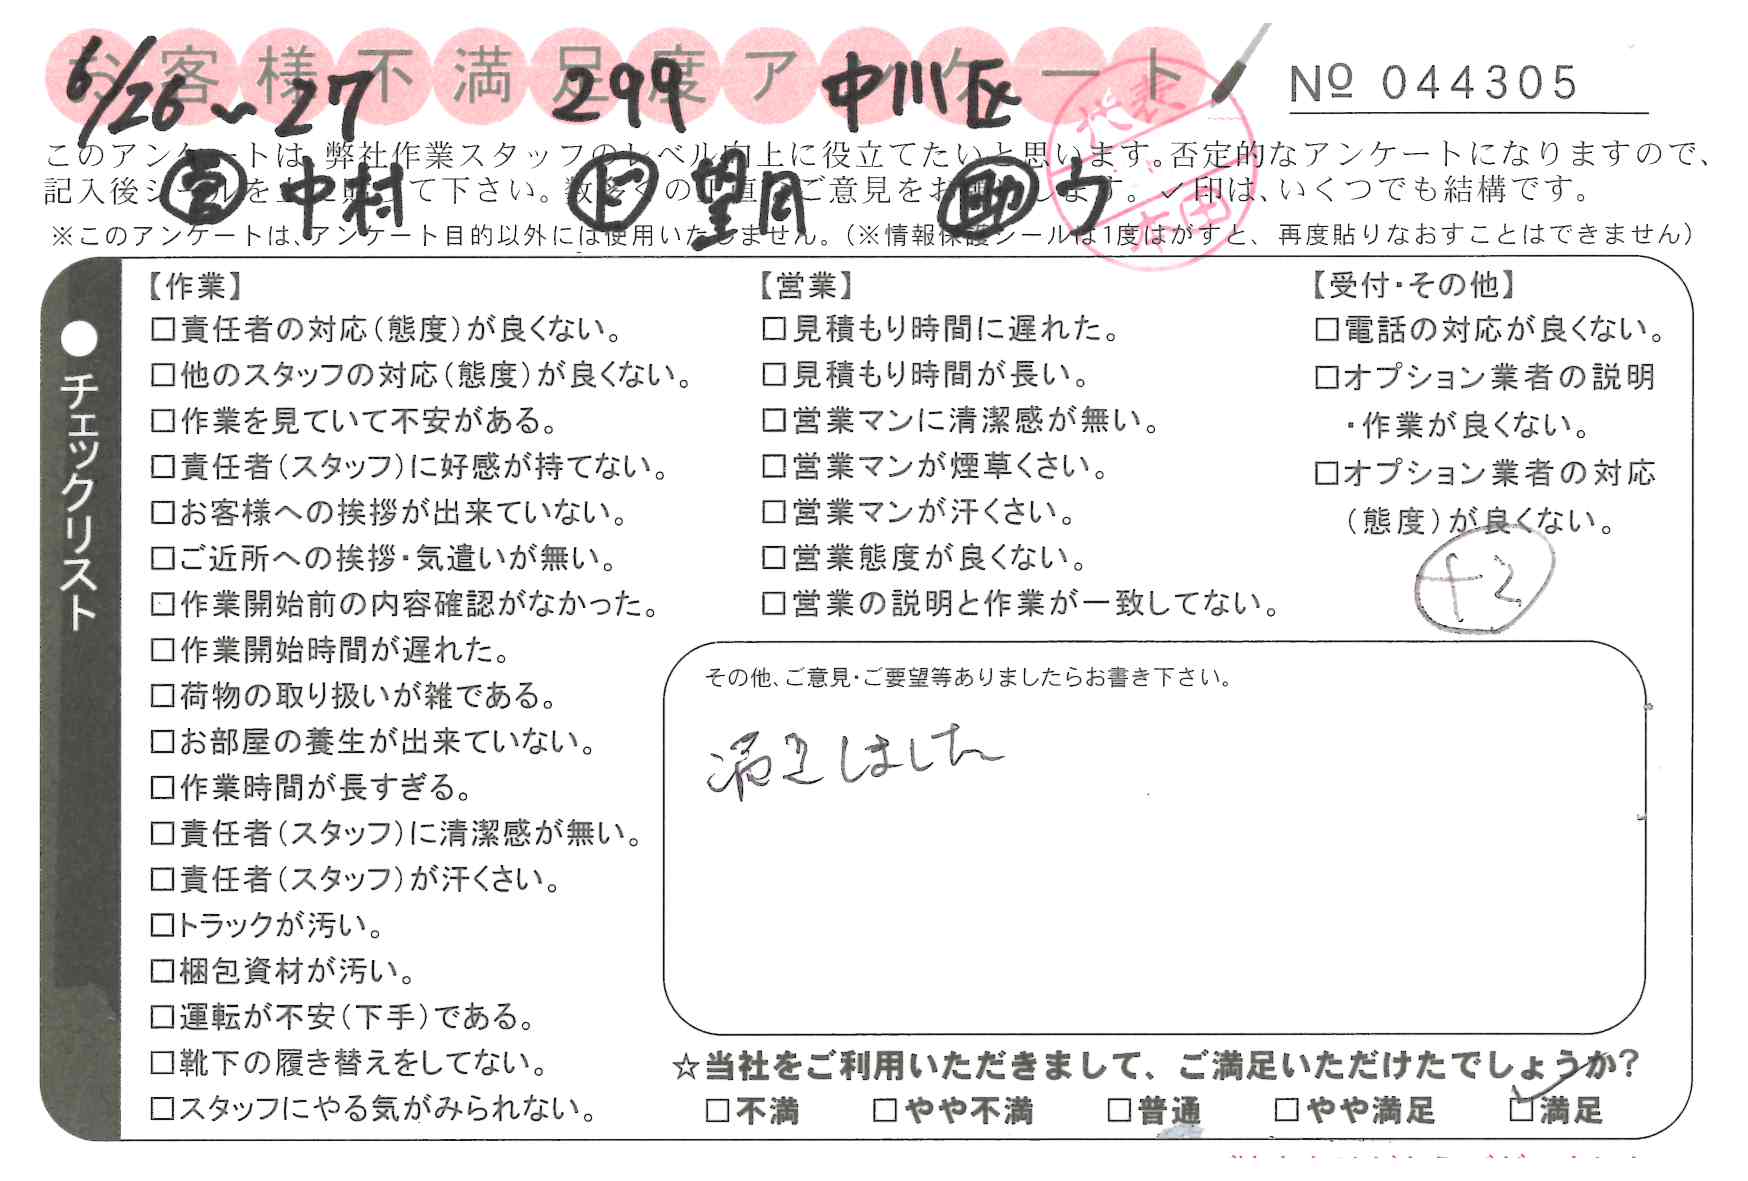 お客様不満足度アンケート
6/26~27 299 中川区
NO 044305
このアンケートは、弊社作業スタッフのレベル向上に役立てたいと思います。否定的なアンケートになりますので、
記入後シールを上に貼って下さい。数多くの正直なご意見をお願いします。✓印は、いくつでも結構です。
営 中村 ド 望月 助 ウ
代表 本田
※このアンケートは、アンケート目的以外には使用いたしません。(※情報保護シールは1度はがすと、再度貼りなおすことはできません)
●チェックリスト
【作業】
□責任者の対応(態度)が良くない。
□他のスタッフの対応(態度)が良くない。
□作業を見ていて不安がある。
□責任者(スタッフ)に好感が持てない。
□お客様への挨拶が出来ていない。
□ご近所への挨拶・気遣いが無い。
□作業開始前の内容確認がなかった。
□作業開始時間が遅れた。
□荷物の取り扱いが雑である。
□お部屋の養生が出来ていない。
□作業時間が長すぎる。
□責任者(スタッフ)に清潔感が無い。
□責任者(スタッフ)が汗くさい。
□トラックが汚い。
□梱包資材が汚い。
□運転が不安(下手)である。
□靴下の履き替えをしてない。
□スタッフにやる気がみられない。
【営業】
□見積もり時間に遅れた。
□見積もり時間が長い。
□営業マンに清潔感が無い。
□営業マンが煙草くさい。
□営業マンが汗くさい。
□営業態度が良くない。
□営業の説明と作業が一致してない。
【受付・その他】
□電話の対応が良くない。
□オプション業者の説明
・作業が良くない。
□オプション業者の対応
(態度)が良くない。
+2
その他、ご意見・ご要望等ありましたらお書き下さい。
満足しました
☆当社をご利用いただきまして、ご満足いただけたでしょうか?
□不満 □やや不満 □普通 □やや満足 ☑満足